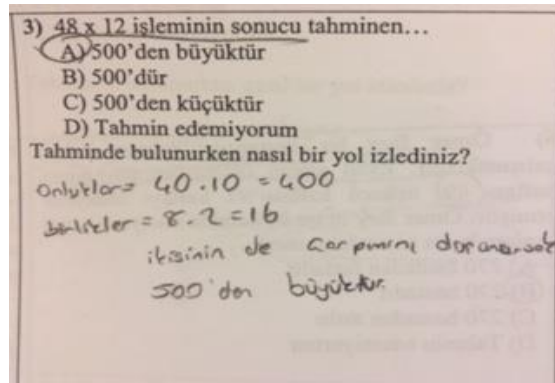 3) 48 x 12 işleminin sonucu tahminen…
A) 500'den büyüktür
B) 500'dür
C) 500'den küçüktür
D) Tahmin edemiyorum
Tahminde bulunurken nasıl bir yol izlediniz?
Onluklar = 40.10 = 400
birlikler = 8.2 = 16
ikisinin de çarpımını
500'den büyüktür.